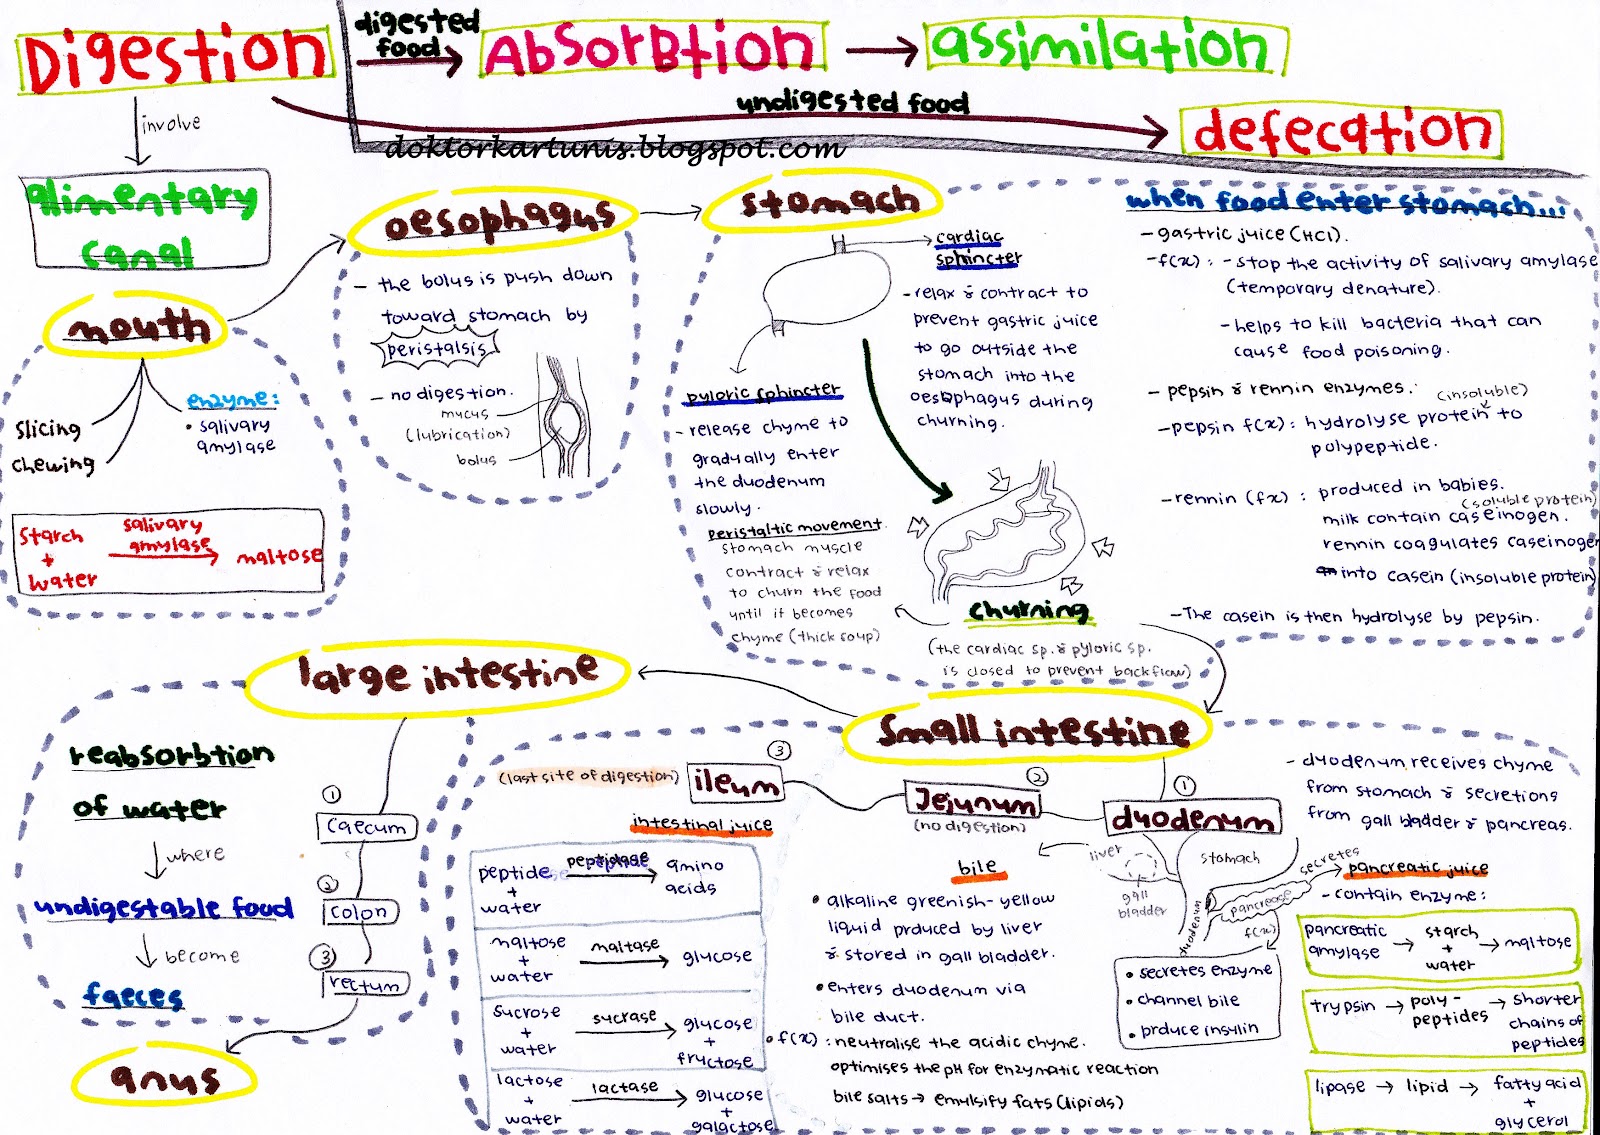 Digestion
digested
food
AbsorBtion
assimilation
undigested food
defecation
doktorkartunis.blogspot.com
involve
alimentary
canal
mouth
slicing
chewing
enzyme:
• salivary
amylase
starch
+
water
salivary
amylase
maltose
oesophagus
- the bolus is push down
toward stomach by
peristalsis
- no digestion.
mucus
(lubrication)
bolus
stomach
cardiac
sphincter
- relax & contract to
prevent gastric juice
to go outside the
stomach into the
oesophagus during
churning.
pyloric sphincter
- release chyme to
gradually enter
the duodenum
slowly.
peristaltic movement
stomach muscle
contract & relax
to churn the food
until it becomes
chyme (thick soup)
churning
(the cardiac sp. & pyloric sp.
is closed to prevent backflow)
when food enter stomach...
- gastric juice (HCl).
- f(x) : - stop the activity of salivary amylase
(temporary denature).
- helps to kill bacteria that can
cause food poisoning.
- pepsin & rennin enzymes.
(insoluble)
- pepsin f(x) : hydrolyse protein to
polypeptide.
- rennin (fx) : produced in babies.
(soluble protein)
milk contain caseinogen.
rennin coagulates caseinogen
into casein (insoluble protein)
- The casein is then hydrolyse by pepsin.
small intestine
① duodenum
- duodenum receives chyme
from stomach & secretions
from gall bladder & pancreas.
② Jejunum
(no digestion)
③ ileum
(last site of digestion)
intestinal juice
peptide
+
water
peptidase
amino
acids
maltose
+
water
maltase
glucose
sucrose
+
water
sucrase
glucose
+
fructose
lactose
+
water
lactase
glucose
+
galactose
bile
• alkaline greenish-yellow
liquid prduced by liver
& stored in gall bladder.
• enters duodenum via
bile duct.
• f(x) : neutralise the acidic chyme.
optimises the pH for enzymatic reaction
bile salts → emulsify fats (lipids)
liver
gall
bladder
stomach
duodenum
pancrease
secretes
f(x)
• secretes enzyme
• channel bile
• prduce insulin
pancreatic juice
- contain enzyme:
pancreatic
amylase → starch
+
water → maltose
trypsin → poly-
peptides → shorter
chains of
peptides
lipase → lipid → fatty acid
+
glycerol
large intestine
reabsorbtion
of water
where
undigestable food
become
faeces
① caecum
② colon
③ rectum
anus